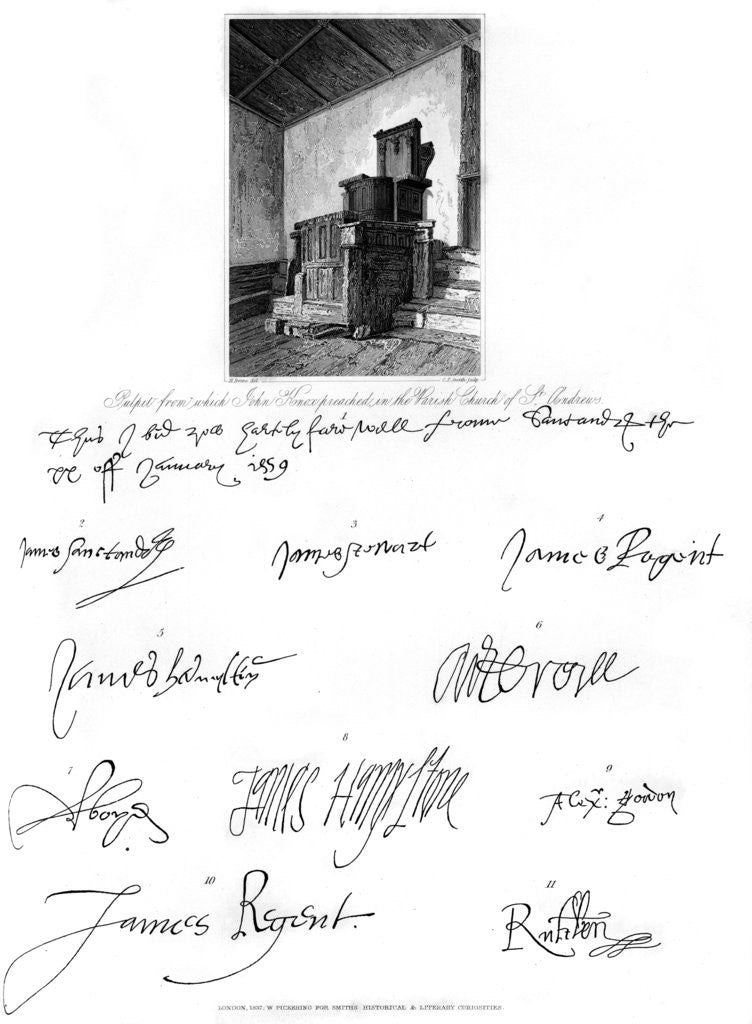 H. Browne delt.
C. J. Smith sculp.
Pulpit from which John Knox preached, in the Parish Church of St. Andrews.
Thus I bid you hartly fair well from Sanctand the
xx off Januarij, 1559
2
3
4
James Sanctand
James Stewart
James Regent
5
6
James hamyltin
7
8
9
Aboyn
James Hamyltone
Alexr: Gordon
10
11
James Regent.
Ruthven
LONDON, 1837; W PICKERING FOR SMITHS HISTORICAL & LITERARY CURIOSITIES.